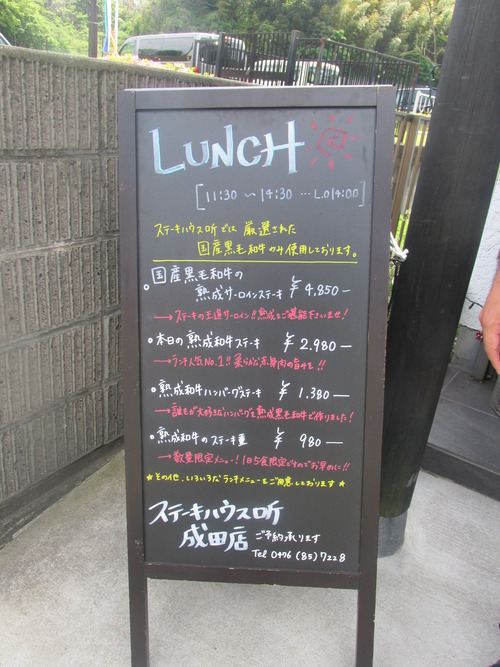 LUNCH
[11:30 〜 14:30 … L.O14:00]
ステーキハウス听では 厳選された
国産黒毛和牛のみ使用しております。
国産黒毛和牛の
熟成サーロインステーキ ¥4,850—
→ステーキの王道サーロイン!!熟成をご堪能下さいませ!
本日の熟成和牛ステーキ ¥2.980—
→ランチ人気No.1!!柔らかな赤身肉の旨みを!!
熟成和牛ハンバーグステーキ ¥1.380—
→誰もが大好きなハンバーグを熟成黒毛和牛で作りました!
熟成和牛のステーキ重 ¥980—
→数量限定メニュー!1日5食限定ですのでお早めに!!
★その他、いろいろなランチメニューをご用意しております★
ステーキハウス听
成田店 ご予約承ります
Tel 0476 (85) 7228